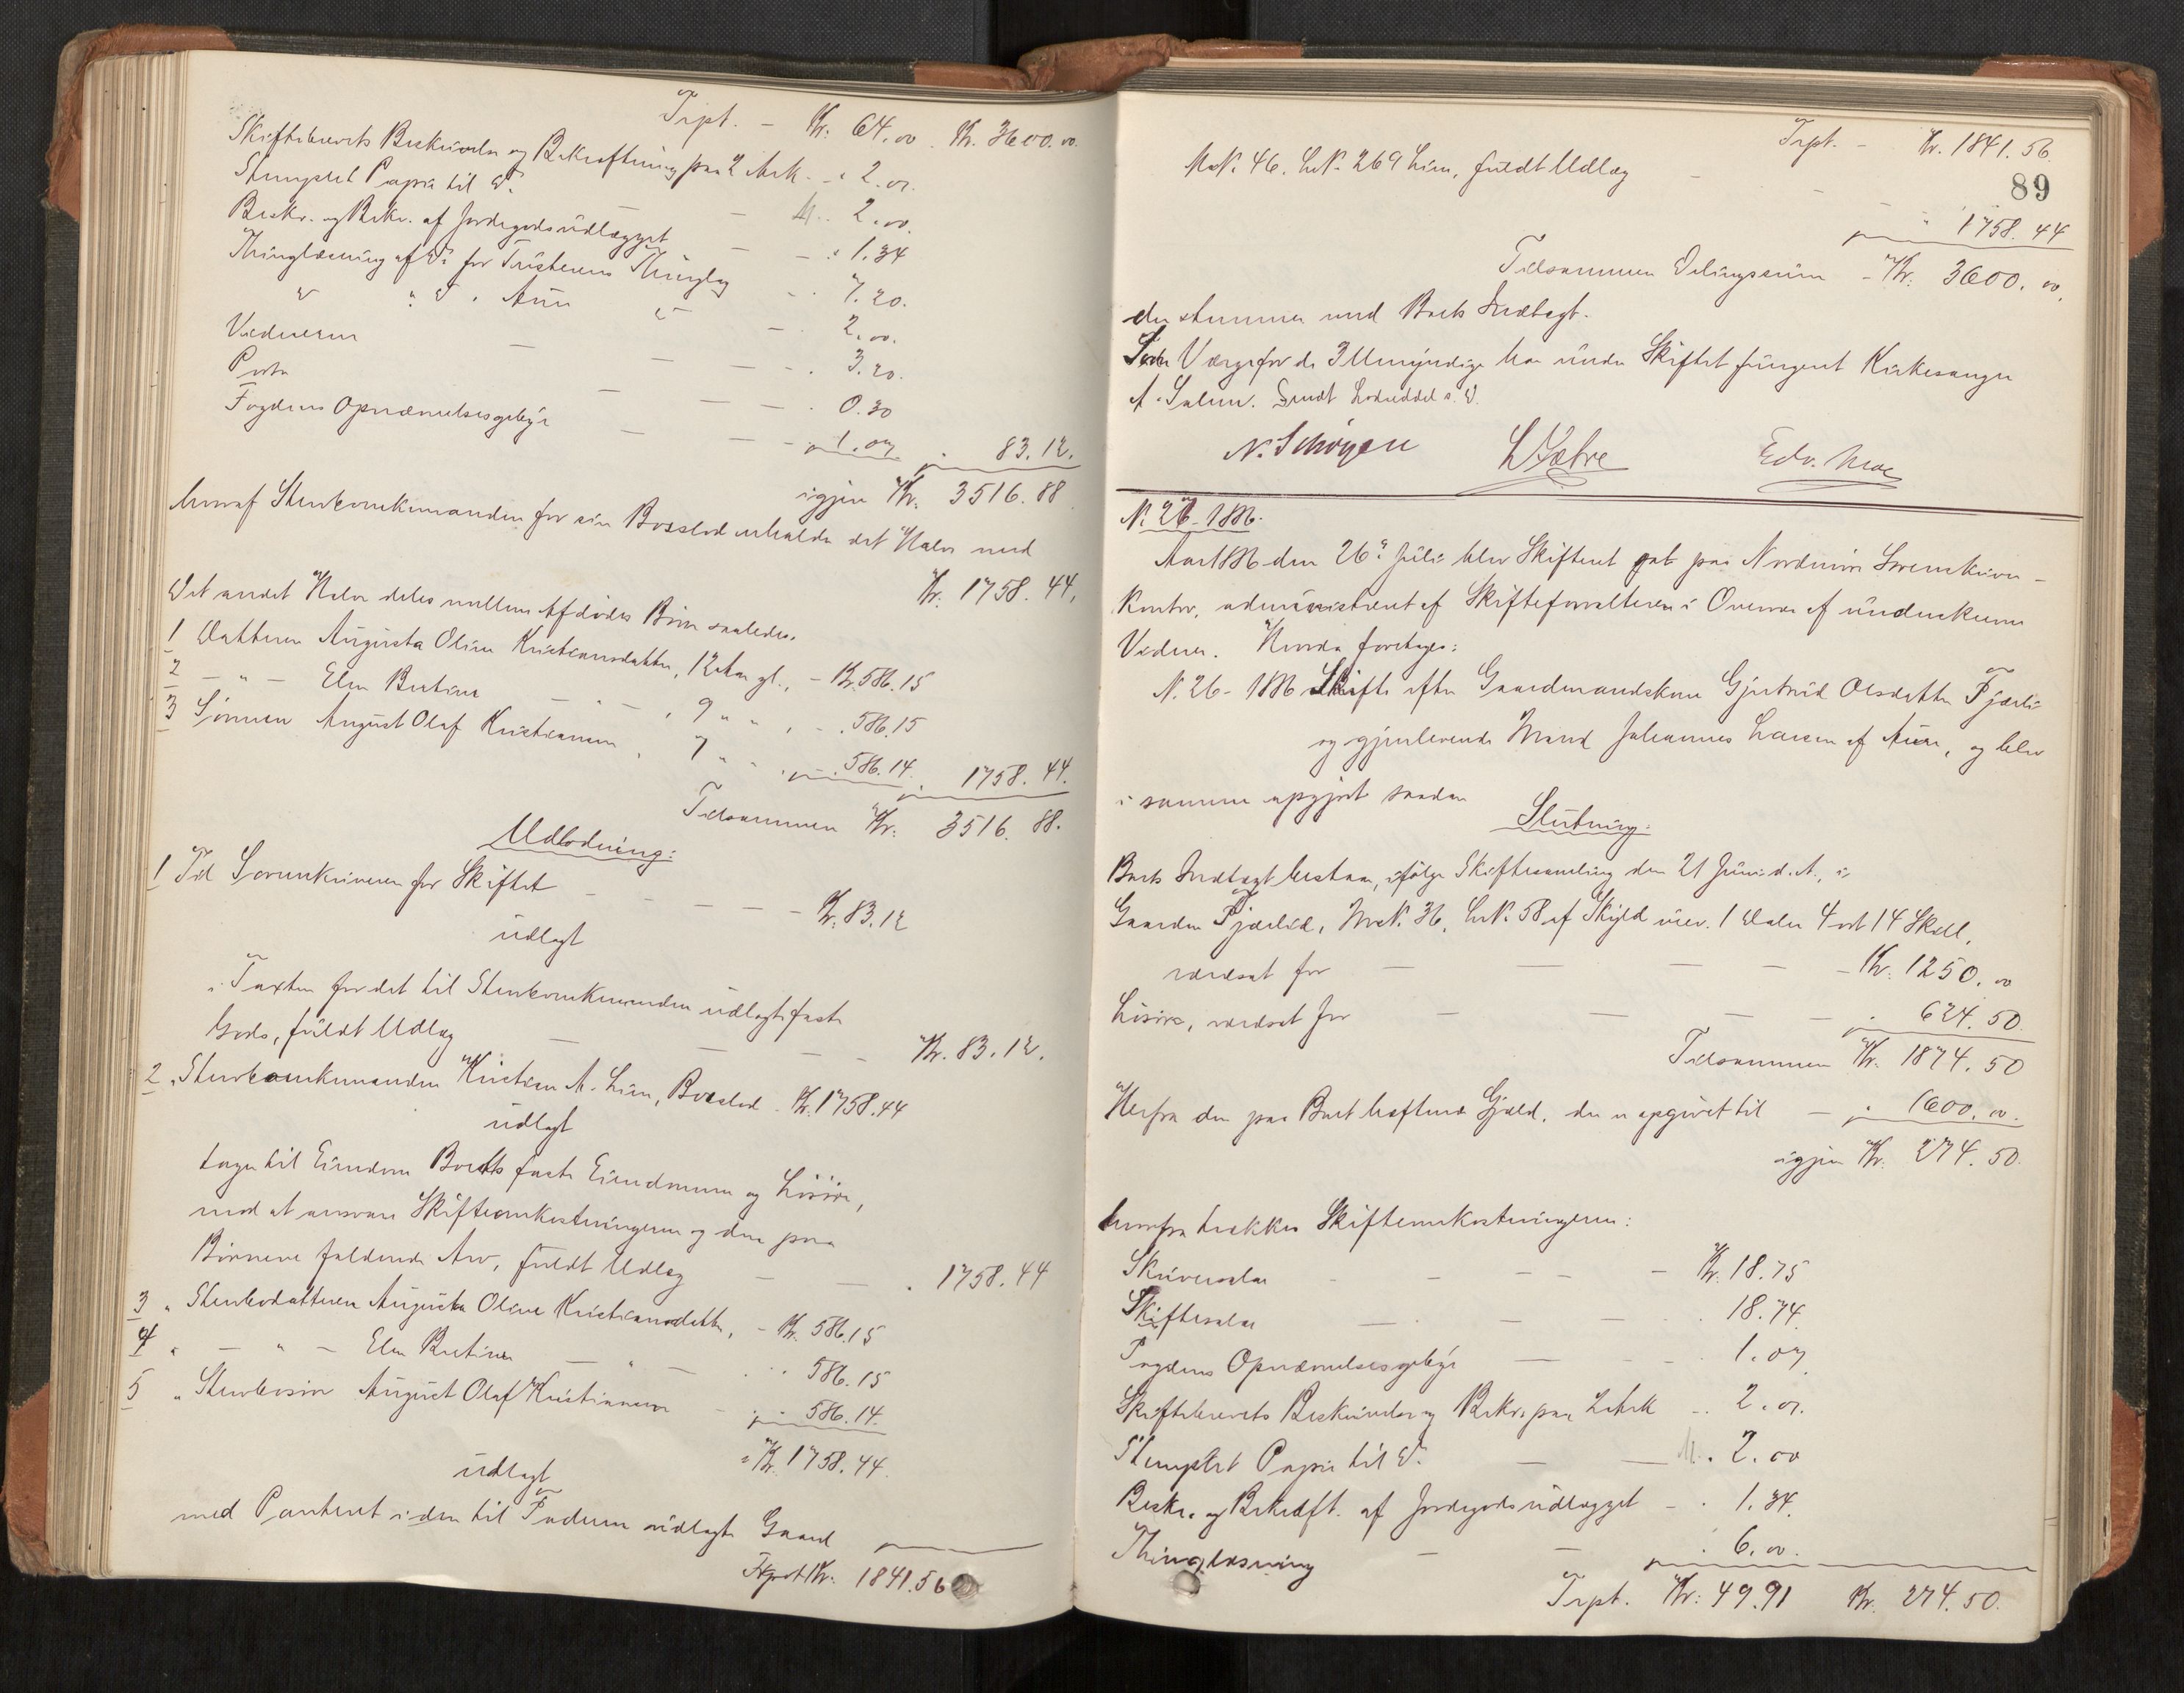 Trpt. - Kr. 64.00. Kr. 3600.00.
Skiftebrevets Beskrivelse og Bekræftning paa 2 Ark - " 2.00.
Stemplet Papir til Do. - - M. 2.00.
Beskr. og Bekr. af Jordegodsudlægget - " 1.34
Thinglæsning af Do. for Tusterens Thinglag - " 7.20.
" " Do. " Aure Do. - 2.00.
Vidnerne - - - 3.20.
Porto - - - 0.30
Fogdens Opnævnelsesgebyr - - " 1.07 " 83.12.
igjen Kr. 3516.88
hvoraf Stervboenkemanden for sin Boeslod erholder det Halve med
Kr. 1758.44.
Det andet Halve deles mellem Afdødes Børn saaledes.
1 Datteren Augusta Oline Kristiansdatter, 12 Aar gl., - Kr. 586.15
2 - " - Elen Bertine - " - , 9 " " , - " 586.15
3 Sønnen August Olaf Kristiansen , 7 " " , " 586.14 " 1758.44.
Tilsammen Kr. 3516.88.
Udlodning:
1 Til Sorenskriveren for Skiftet - - - - Kr. 83.12
udlagt
i Taxten for det til Stervboenkemanden udlagte faste
Gods, fuldt Udlæg - - - - Kr. 83.12.
2 " Stervboenkemanden Kristian A. Lien, Boeslod. Kr. 1758.44
udlagt
tager til Eiendom Boets faste Eiendomme og Løsøre,
mod at ansvare Skifteomkostningerne og den paa
Børnene faldende Arv, fuldt Udlæg - - " 1758.44
3 " Stervbodatteren Augusta Oline Kristiansdatter, - Kr. 586.15
4 " - " - Elen Bertine - " - " 586.15
5 " Stervbosøn August Olaf Kristiansen - " 586.14.
Kr. 1758.44.
udlagt
med Panteret i den til Faderen udlagte Gaard
Trpt. Kr. 1841.56
Trpt. - Kr. 1841.56.
89
M.N. 46. L.N. 269 Lien, fuldt Udlæg - - " 1758.44
Tilsammen Delingssum - Kr. 3600.00,
der stemmer med Boets Indtægt.
Som Værge for de 3 Umyndige har under Skiftet fungeret Kirkesanger
A. Salen. Sendt Lodseddel s. D.
N. Schrøyen LSætre Edv. Moe
N. 26-1886.
Aar 1886 den 26de Juli blev Skifteret sat paa Nordmøre Sorenskriver-
Kontor, administreret af Skifteforvalteren i Overvær af underskrevne
Vidner. Hvorda foretoges:
N. 26-1886 Skifte efter Gaardmandskone Gjertrud Olsdatter Fjærli
og gjenlevende Mand Johannes Larsen af Aure, og blev
i samme opgjort saadan
Slutning:
Boets Indtægt bestaar, ifølge Skiftesamling den 21 Juni d. A., i
Gaarden Fjærlid, M.N. 36, L.N. 58 af Skyld urev. 1 Daler 4 ort 14 Skill.
værdsat for - - - - - Kr. 1250.00
Løsøre, værdsat for - - - - " 624.50.
Tilsammen Kr. 1874.50
Herfra den paa Boet heftende Gjæld, der er opgivet til - " 1600.00.
igjen Kr. 274.50.
hvorfra trækkes Skifteomkostningerne:
Skriversalær - - - - - Kr. 18.75
Skiftesalær - - - - . 18.74.
Fogdens Opnævnelsesgebyr - - - . 1.07.
Skiftebrevets Beskrivelse og Bekr. paa 2 Ark - . 2.00.
Stemplet Papir til Do. - - M. 2.00
Beskr. og Bekræft. af Jordegodsudlægget - . 1.34.
Thinglæsning - - . 6.00.
Trpt. Kr. 49.91 Kr. 274.50.